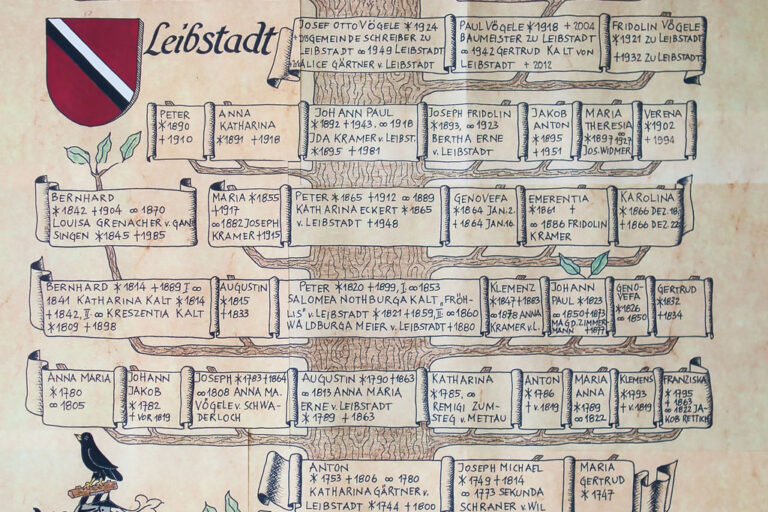 Leibstadt
JOSEF OTTO VÖGELE *1924
GEMEINDE SCHREIBER ZU
LEIBSTADT ∞ 1949 LEIBSTADT
ALICE GÄRTNER v. LEIBSTADT
PAUL VÖGELE *1918 +2004
BAUMEISTER ZU LEIBSTADT
∞ 1942 GERTRUD KALT VON
LEIBSTADT + 2012
FRIDOLIN VÖGELE
*1921 ZU LEIBSTADT
+1932 ZU LEIBSTADT
PETER
*1890
+1910
ANNA
KATHARINA
*1891 +1918
JOHANN PAUL
*1892 +1943. ∞ 1918
IDA KRAMER v. LEIBST.
*1895 +1981
JOSEPH FRIDOLIN
*1893, ∞ 1923
BERTHA ERNE
v. LEIBSTADT
JAKOB
ANTON
*1895
+1951
MARIA
THERESIA
*1897 ∞ 1927
JOS. WIDMER
VERENA
*1902
+1994
BERNHARD
*1842 +1904 ∞ 1870
LOUISA GRENACHER v. GAN
SINGEN *1845 +1985
MARIA *1855
+1917
∞1882 JOSEPH
KRAMER +1915
PETER *1865 +1912 ∞ 1889
KATHARINA ECKERT *1865
v. LEIBSTADT +1948
GENOVEFA
*1864 JAN. 2.
+1864 JAN. 16.
EMERENTIA
*1861 +
∞ 1886 FRIDOLIN
KRAMER
KAROLINA
*1866 DEZ. 18.
+1866 DEZ. 22.
BERNHARD *1814 +1889 I ∞
1841 KATHARINA KALT *1814
+1842, II ∞ KRESZENTIA KALT
*1809 +1898
AUGUSTIN
*1815
+1833
PETER *1820 +1899, I ∞ 1853
SALOMEA NOTHBURGA KALT „FRÖH-
LIS" v. LEIBSTADT *1821 +1859, II ∞ 1860
WALDBURGA MEIER v. LEIBSTADT +1880
KLEMENZ
*1847 +1883
∞ 1878 ANNA
KRAMER v. L.
JOHANN
PAUL *1823
∞ 1850 +1873
MAGD. ZIMMER
MANN +1877
GENO-
VEFA
*1826
∞ 1850
GERTRUD
*1832
+1834
ANNA MARIA
*1780
∞ 1805
JOHANN
JAKOB
*1782
+ VOR 1819
JOSEPH *1783 +1864
∞ 1808 ANNA MA.
VÖGELE v. SCHWA-
DERLOCH
AUGUSTIN *1790 +1863
∞ 1813 ANNA MARIA
ERNE v. LEIBSTADT
*1789 +1863
KATHARINA
*1785, ∞
REMIGI ZUM-
STEG v. METTAU
ANTON
*1786
+ v. 1819
MARIA
ANNA
*1789
∞ 1822
KLEMENS
*1793
+ v. 1819
FRANZISKA
*1795
+1863
∞ 1822 JA-
KOB RETTICH
ANTON
*1753 +1806 ∞ 1780
KATHARINA GÄRTNER v.
LEIBSTADT *1744 +1800
JOSEPH MICHAEL
*1749 +1814
∞ 1773 SEKUNDA
SCHRANER v. WIL
MARIA
GERTRUD
*1747